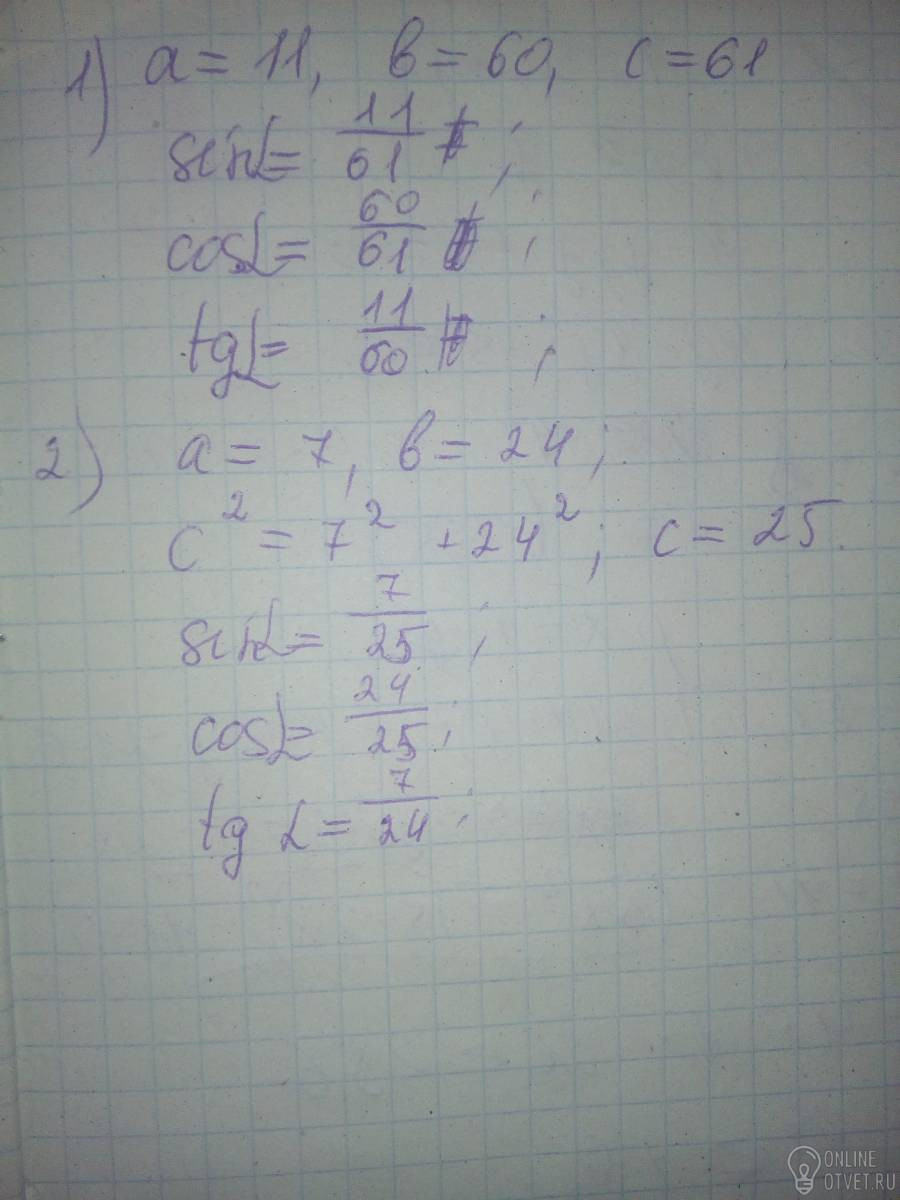 1) a = 11, b = 60, c = 61
sinα = 11/61 ;
cosα = 60/61 ;
tgα = 11/60 ;
2) a = 7, b = 24;
c² = 7² + 24²; c = 25.
sinα = 7/25 ;
cosα = 24/25 ;
tg α = 7/24 ;
ONLINE
OTVET.RU